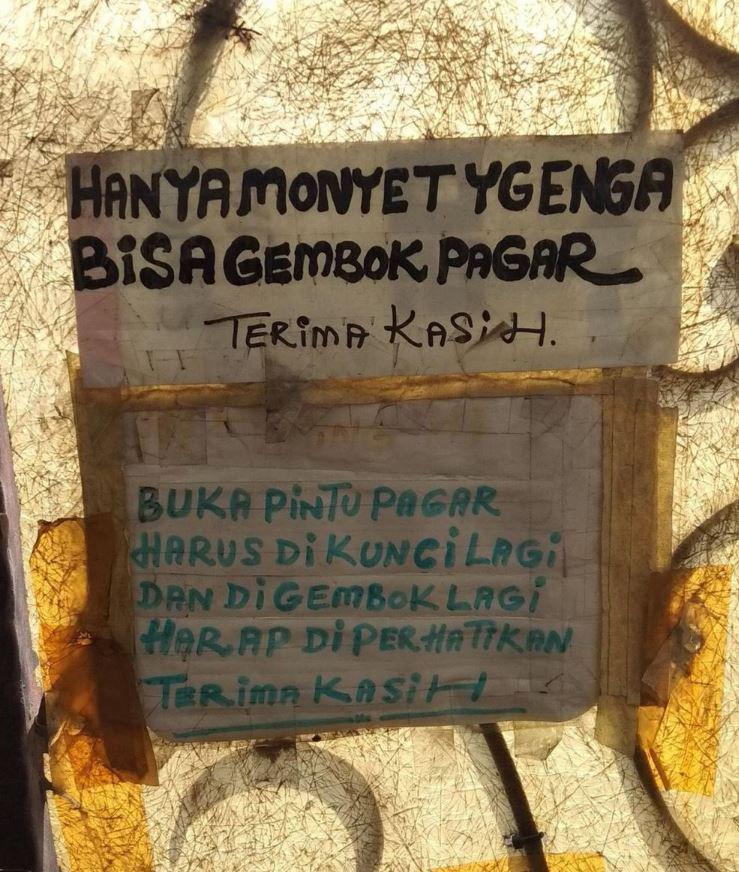 HANYA MONYET YG ENGA
BISA GEMBOK PAGAR
TERIMA KASIH.
BUKA PINTU PAGAR
HARUS DI KUNCI LAGI
DAN DI GEMBOK LAGI
HARAP DI PERHATIKAN
TERIMA KASIH